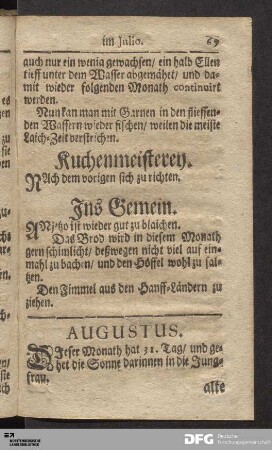 im Julio. 69
auch nur ein wenig gewachsen/ ein halb Ellen
tieff unter dem Wasser abgemähet/ und da-
mit wieder folgenden Monath continuirt
werden.
Nun kan man mit Garnen in den fliessen-
den Wassern wieder fischen/ weilen die meiste
Laich-Zeit verstrichen.
Kuchenmeisterey.
NAch dem vorigen sich zu richten.
Ins Gemein.
ANjetzo ist wieder gut zu blaichen.
Das Brod wird in diesem Monath
gern schimlicht/ deßwegen nicht viel auf ein-
mahl zu bachen/ und den Höffel wohl zu sal-
tzen.
Den Fimmel aus den Hanff-Ländern zu
ziehen.
AUGUSTUS.
DIeser Monath hat 31. Tag/ und ge-
het die Sonne darinnen in die Jung-
frau.
alte
DFG Deutsche
Forschungsgemeinschaft